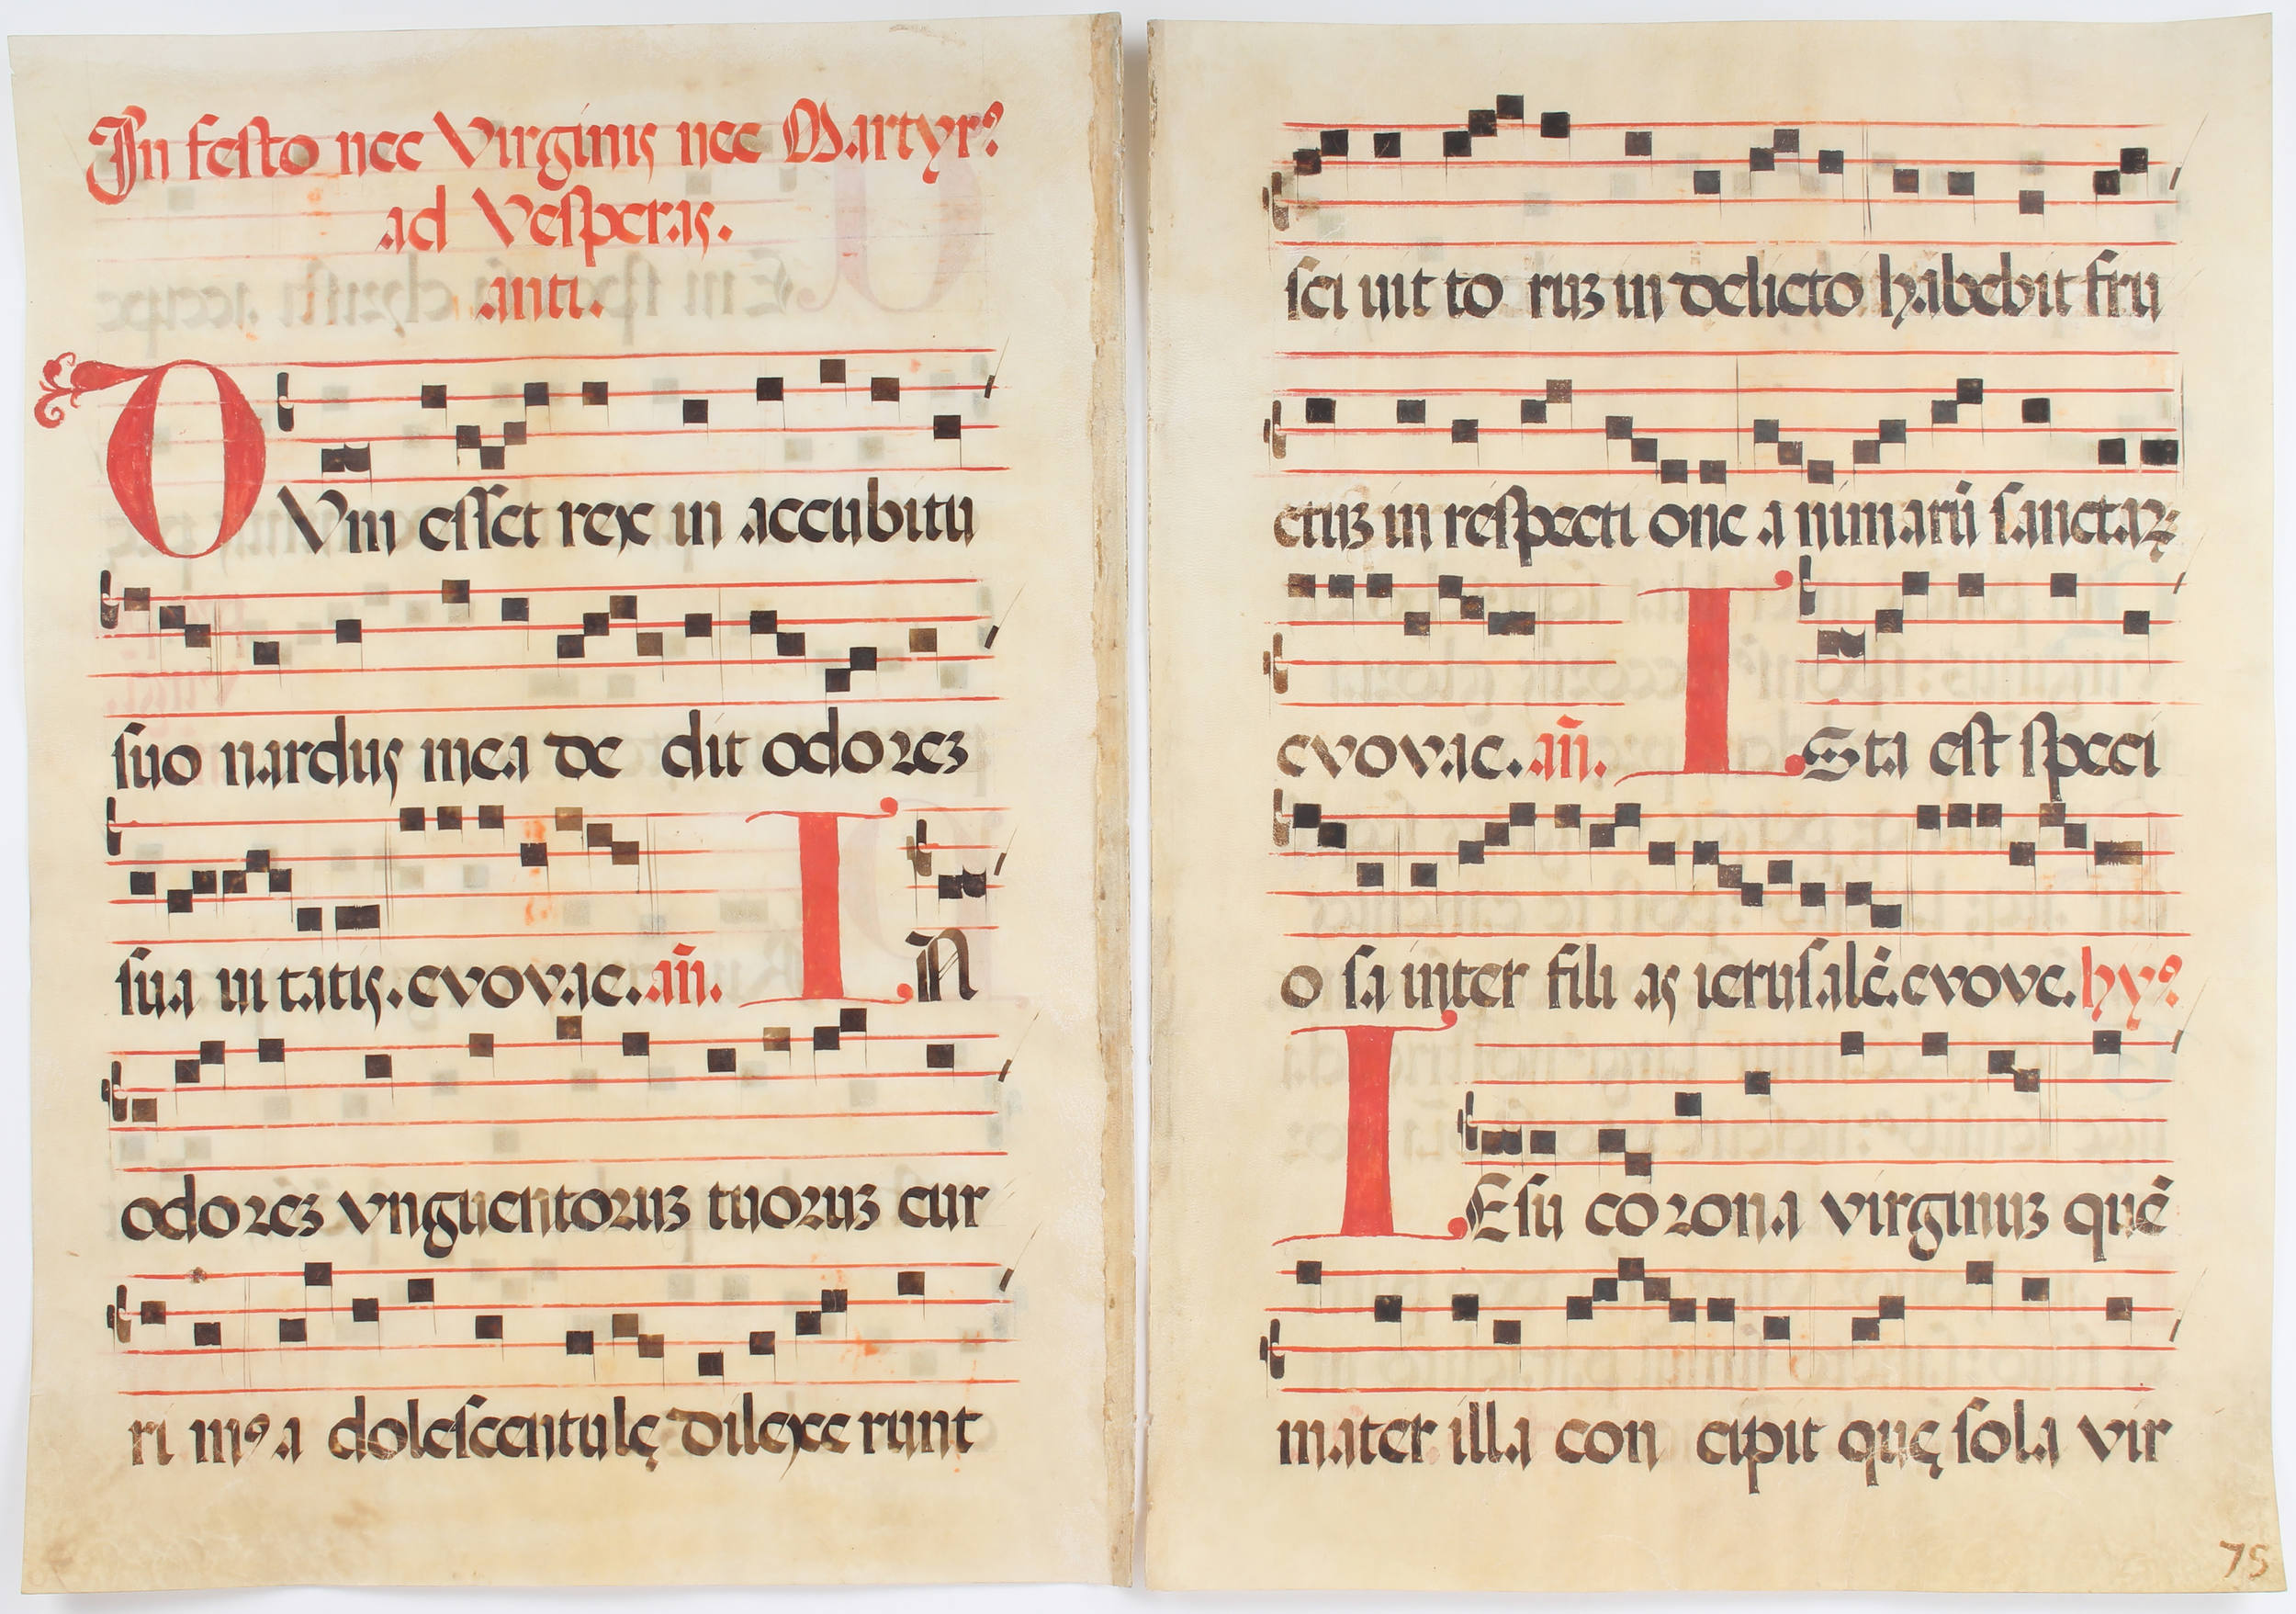 In festo nec Virginis nec Martyrꝯ
ad Vesperas.
anti.
DVm esset rex in accubitu
suo nardus mea de dit odoreʒ
sua ui tatis. evovae. añ. IN
odoreʒ vnguentoruʒ tuoruʒ cur
ri mꝯ a dolescentulę dilexe runt
sci uit to ruʒ in delicto habebit fru
ctuʒ in respecti one a nimarū sanctaꝝ
evovae. añ. ISta est speci
o sa inter fili as ierusalē. evove. hyꝯ
IEsu corona virginuʒ quē
mater illa con cipit quę sola vir
75